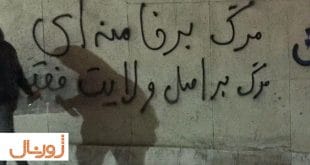 مرگ بر خامنه‌ای
مرگ بر اصل ولایت فقیه
ژورنال